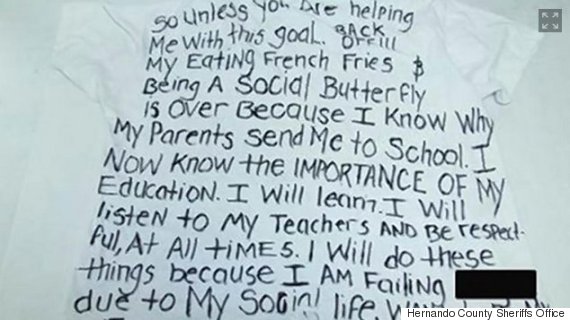 So unless you are helping
Me With this goal. BACK
OFF!!!
My EatiNg FRENCH FRies &
Being A Social Butterfly
is Over Because I Know Why
My Parents Send Me to School. I
NOW KNOW the IMPORTANCE OF My
Education. I Will learn. I Will
listen to My Teachers AND Be respect-
ful, At All tiMES. I Will do these
things because I AM Failing
due to My Social life.
Hernando County Sheriffs Office